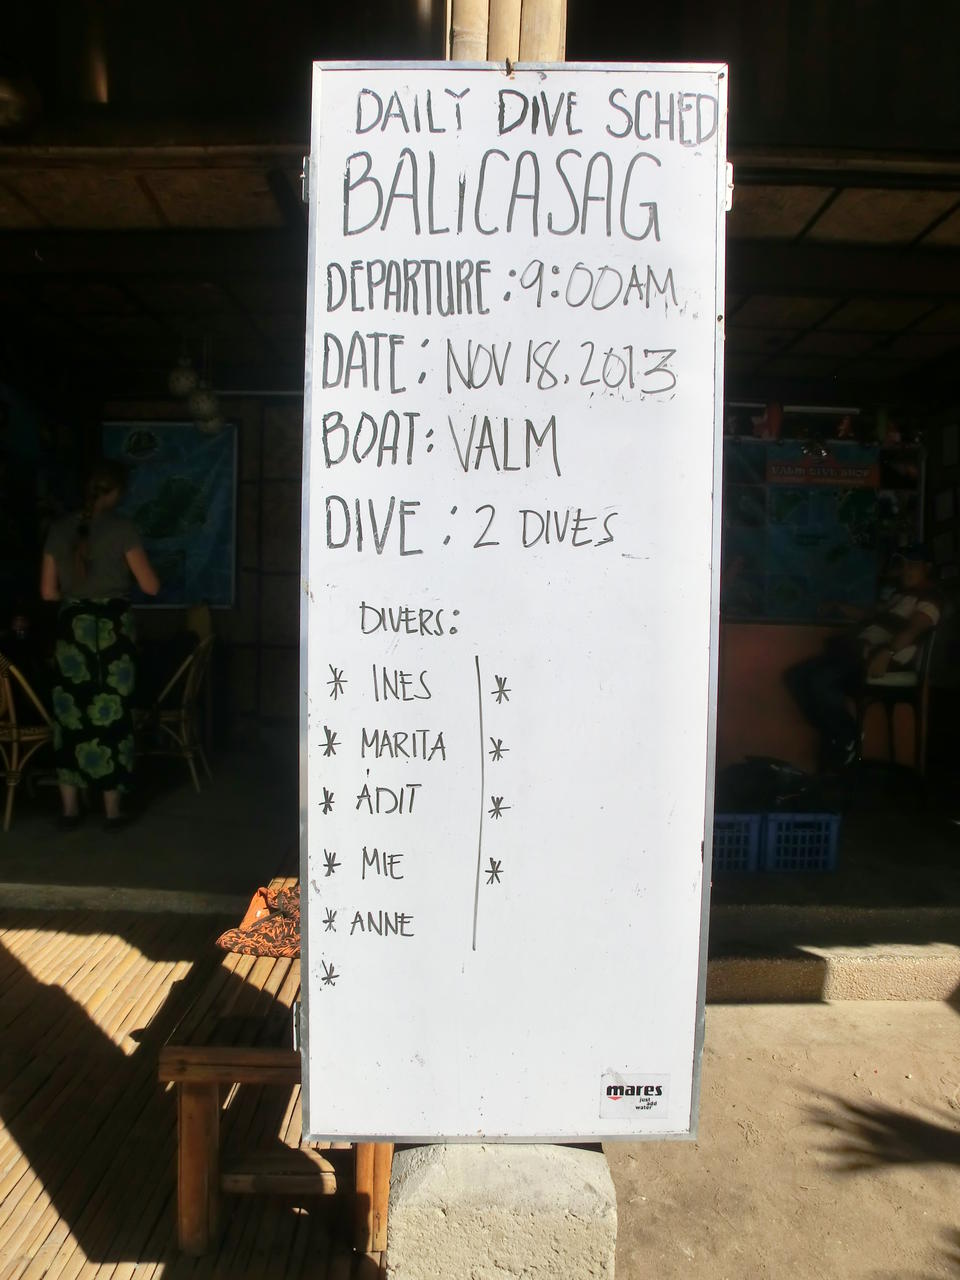 DAILY DIVE SCHED
BALiCASAG
DEPARTURE : 9:00AM
DATE : NOV 18, 2013
BOAT : VALM
DIVE : 2 DIVES
DIVERS :
* INES *
* MARITA *
* ADIT *
* MIE *
* ANNE
*
mares
just
add
water
VALM DIVE SHOP